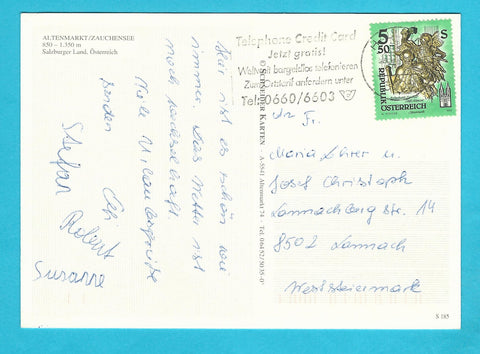 ALTENMARKT/ZAUCHENSEE
850 - 1.350 m
Salzburger Land, Österreich
Hier ist es schön wie
immer. Das Wetter ist
noch
Viele Urlaubsgrüße
senden
Stefan
Robert
Susanne
KARTEN · A-5541 Altenmarkt 74 · Tel. 06452/5035-0
Telephone Credit Card
Jetzt gratis!
Weltweit bargeldlos telefonieren
Zum Ortstarif anfordern unter
Tel. 0660/6603
5 50 S
REPUBLIK
ÖSTERREICH
Fr.
Maria Lehrer u.
Josef Christoph
Lannachberg str. 14
8502 Lannach
Weststeiermark
S 185